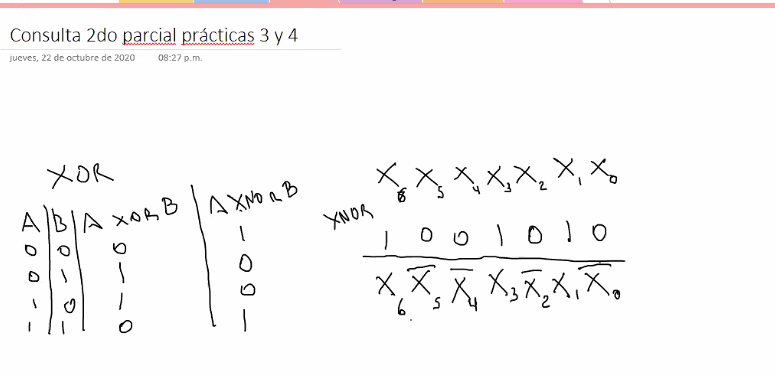 Consulta 2do parcial prácticas 3 y 4
jueves, 22 de octubre de 2020 08:27 p.m.
XOR
A B A XOR B A XNOR B
0 0 0 1
0 1 1 0
1 0 1 0
1 1 0 1
X₆ X₅ X₄ X₃ X₂ X₁ X₀
XNOR
1 0 0 1 0 1 0
X₆ X̅₅ X̅₄ X₃ X̅₂ X₁ X̅₀